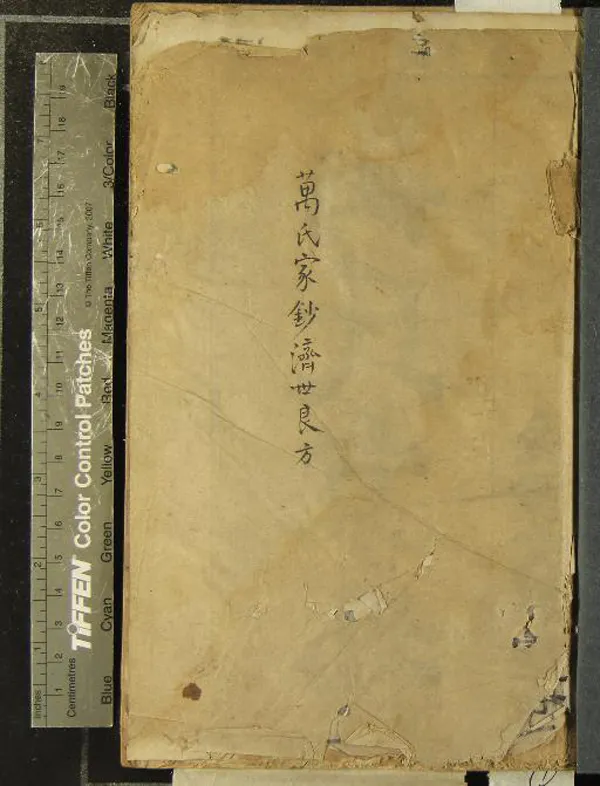 萬氏家鈔濟世良方
TIFFEN Color Control Patches
© The Tiffen Company, 2007
Blue Cyan Green Yellow Red Magenta White 3/Color Black
Centimetres 1 2 3 4 5 6 7 8 9 10 11 12 13 14 15 16 17 18 19
Inches 1 2 3 4 5 6 7